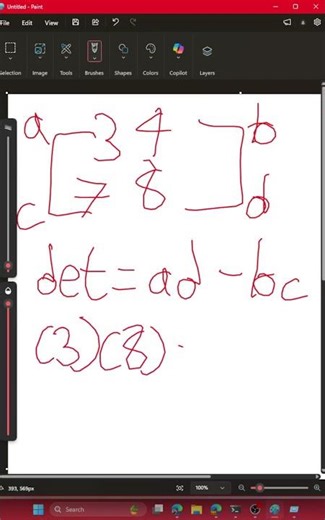 Untitled - Paint
File Edit View
Selection Image Tools Brushes Shapes Colors Copilot Layers
a 3 4 b
c 7 8 d
det = ad - bc
(3)(8)
393, 569px 100%
Search